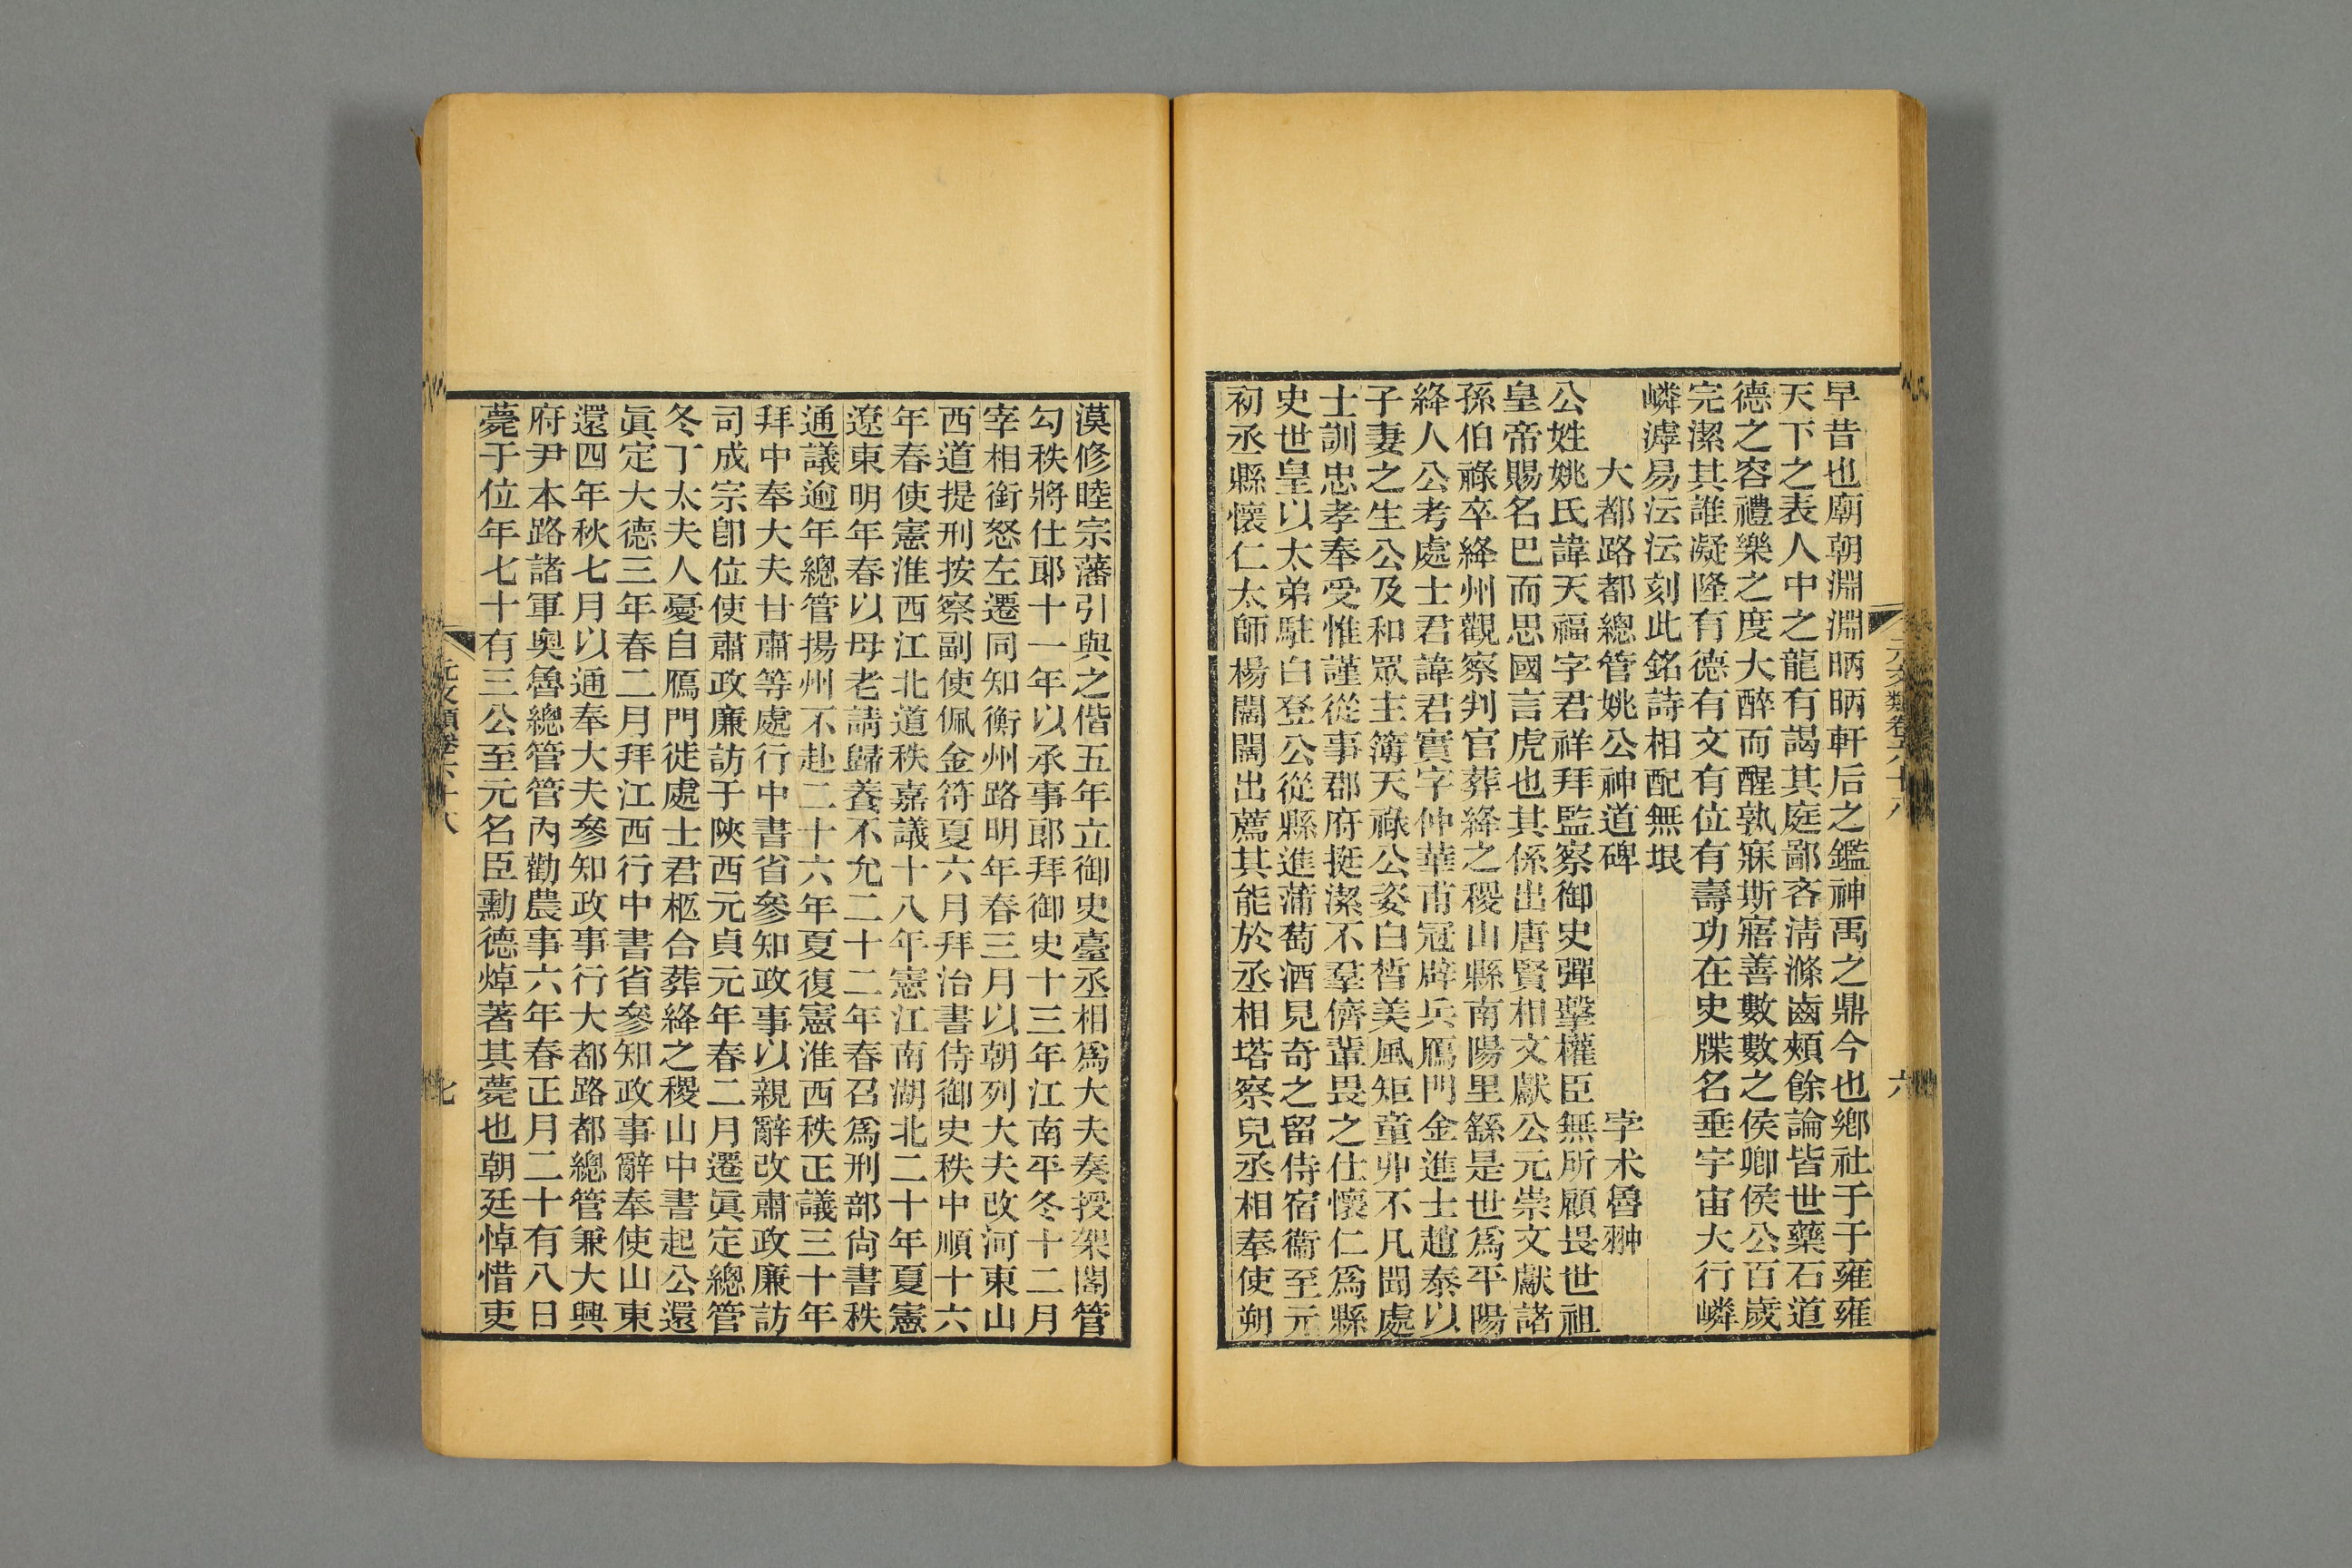 早昔也廟朝淵淵昞昞軒后之鑑神禹之鼎今也鄉社于于雍雍
天下之表人中之龍有謁其庭鄙吝淸滌齒頰餘論皆世藥石道
德之容禮樂之度大醉而醒孰寐斯寤善數數之侯卿侯公百歲
完潔其誰凝隆有德有文有位有壽功在史牒名垂宇宙大行嶙
嶙滹易沄沄刻此銘詩相配無垠
大都路都總管姚公神道碑
孛术魯翀
公姓姚氏諱天福字君祥拜監察御史彈擊權臣無所顧畏世祖
皇帝賜名巴而思國言虎也其係出唐賢相文獻公元崇文獻諸
孫伯祿卒絳州觀察判官葬絳之稷山縣南陽里繇是世爲平陽
絳人公考處士君諱君實字仲華甫冠辟兵鴈門金進士趙泰以
子妻之生公及和眾主簿天祿公姿白晳美風矩童丱不凡聞處
士訓忠孝奉受惟謹從事郡府挺潔不羣儕輩畏之仕懷仁爲縣
史世皇以太弟駐白登公從縣進蒲萄酒見奇之留侍宿衞至元
初丞縣懷仁太師楊闊闊出薦其能於丞相塔察兒丞相奉使朔
元文類卷六十八
六
漠修睦宗藩引與之偕五年立御史臺丞相爲大夫奏授架閣管
勾秩將仕郞十一年以承事郞拜御史十三年江南平冬十二月
宰相銜怒左遷同知衡州路明年春三月以朝列大夫改河東山
西道提刑按察副使佩金符夏六月拜治書侍御史秩中順十六
年春使憲淮西江北道秩嘉議十八年憲江南湖北二十年夏憲
遼東明年春以母老請歸養不允二十二年春召爲刑部尙書秩
通議逾年總管揚州不赴二十六年夏復憲淮西秩正議三十年
拜中奉大夫甘肅等處行中書省參知政事以親辭改肅政廉訪
司成宗卽位使肅政廉訪于陝西元貞元年春二月遷眞定總管
冬丁太夫人憂自鴈門徙處士君柩合葬絳之稷山中書起公還
眞定大德三年春二月拜江西行中書省參知政事辭奉使山東
還四年秋七月以通奉大夫參知政事行大都路都總管兼大興
府尹本路諸軍奧魯總管管內勸農事六年春正月二十有八日
薨于位年七十有三公至元名臣勳德焯著其薨也朝廷悼惜吏
元文類卷六十八
七